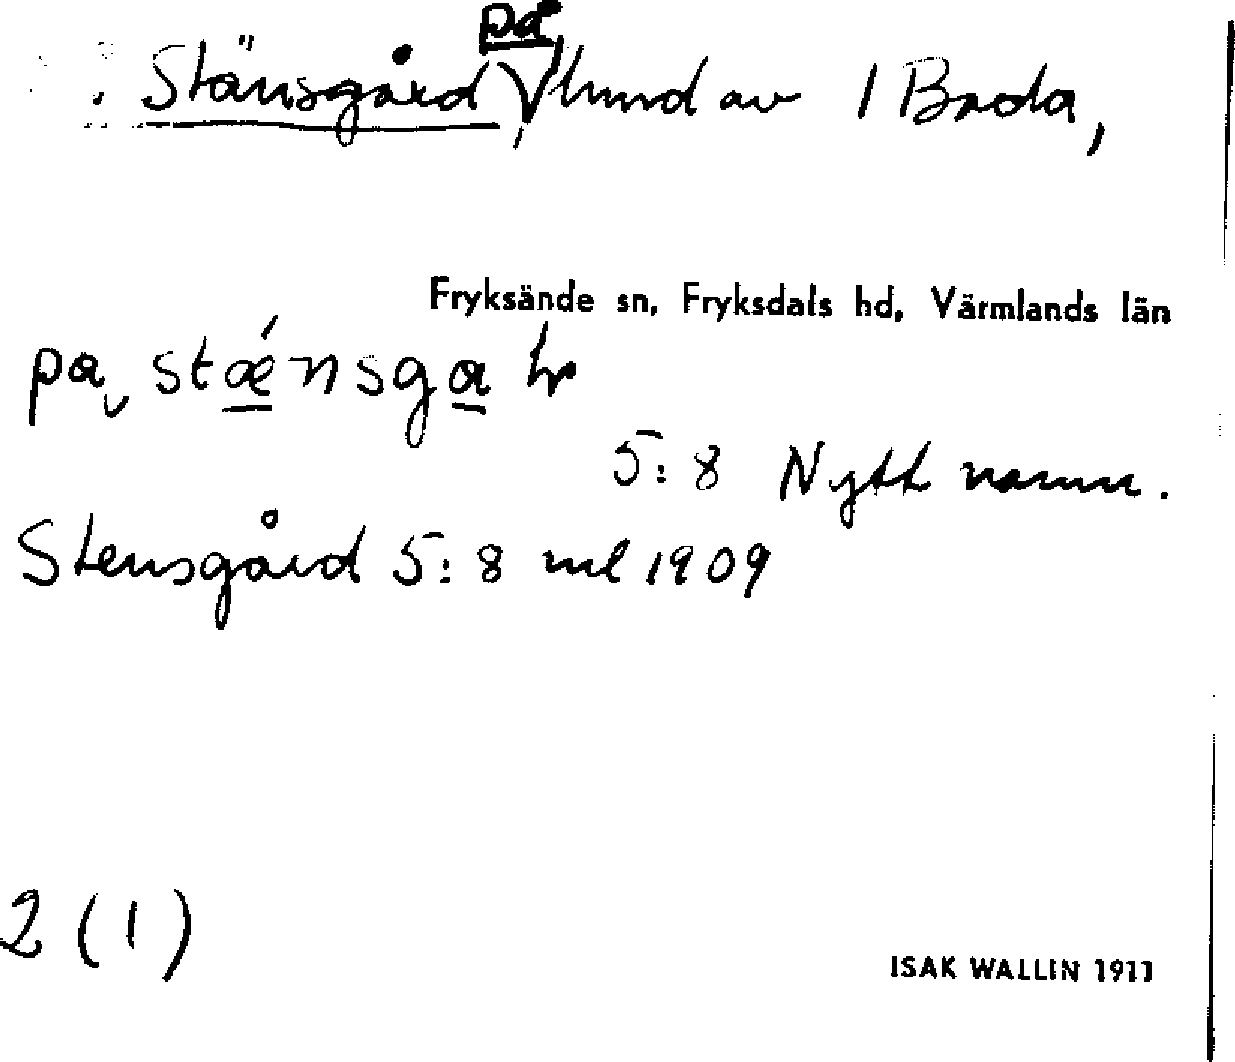 på
Stänsgård, hmd av 1 Bada,
Fryksände sn, Fryksdals hd, Värmlands län
pa stænsga
5:8 Nytt namn.
Stensgård 5:8 ml 1909
2 (1)
ISAK WALLIN 1911